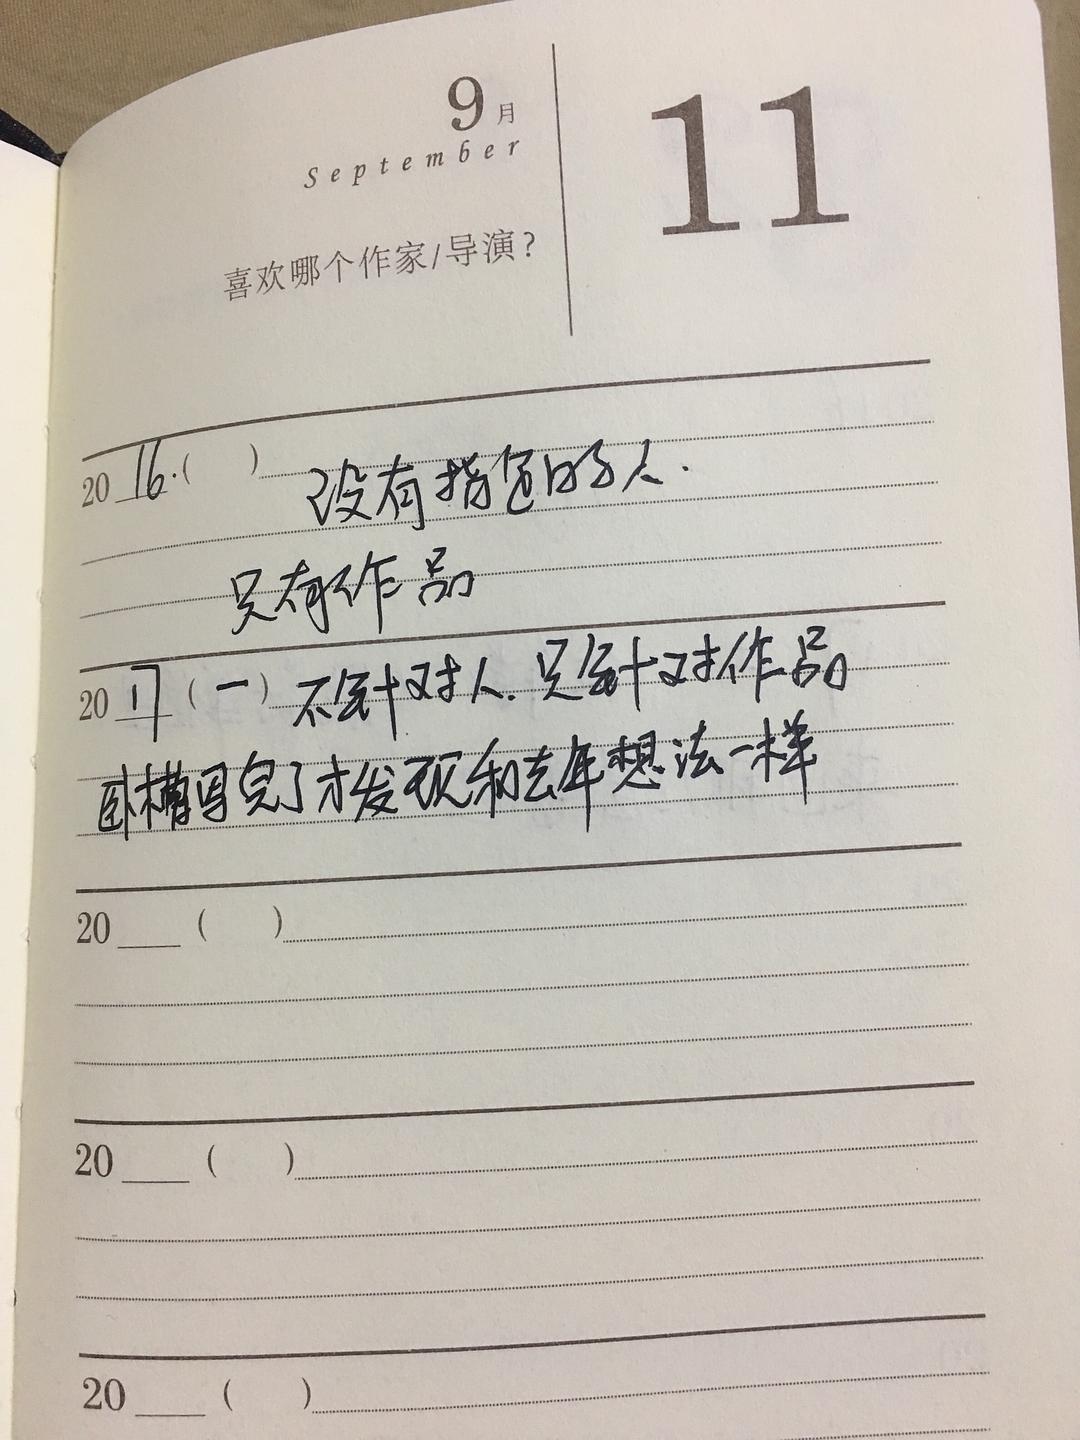 9月
September
11
喜欢哪个作家/导演?
2016.( ) 没有指定的人.
只有作品
2017(一)不针对人.只针对作品
卧槽写完了才发现和去年想法一样
20___( )
20___( )
20___( )